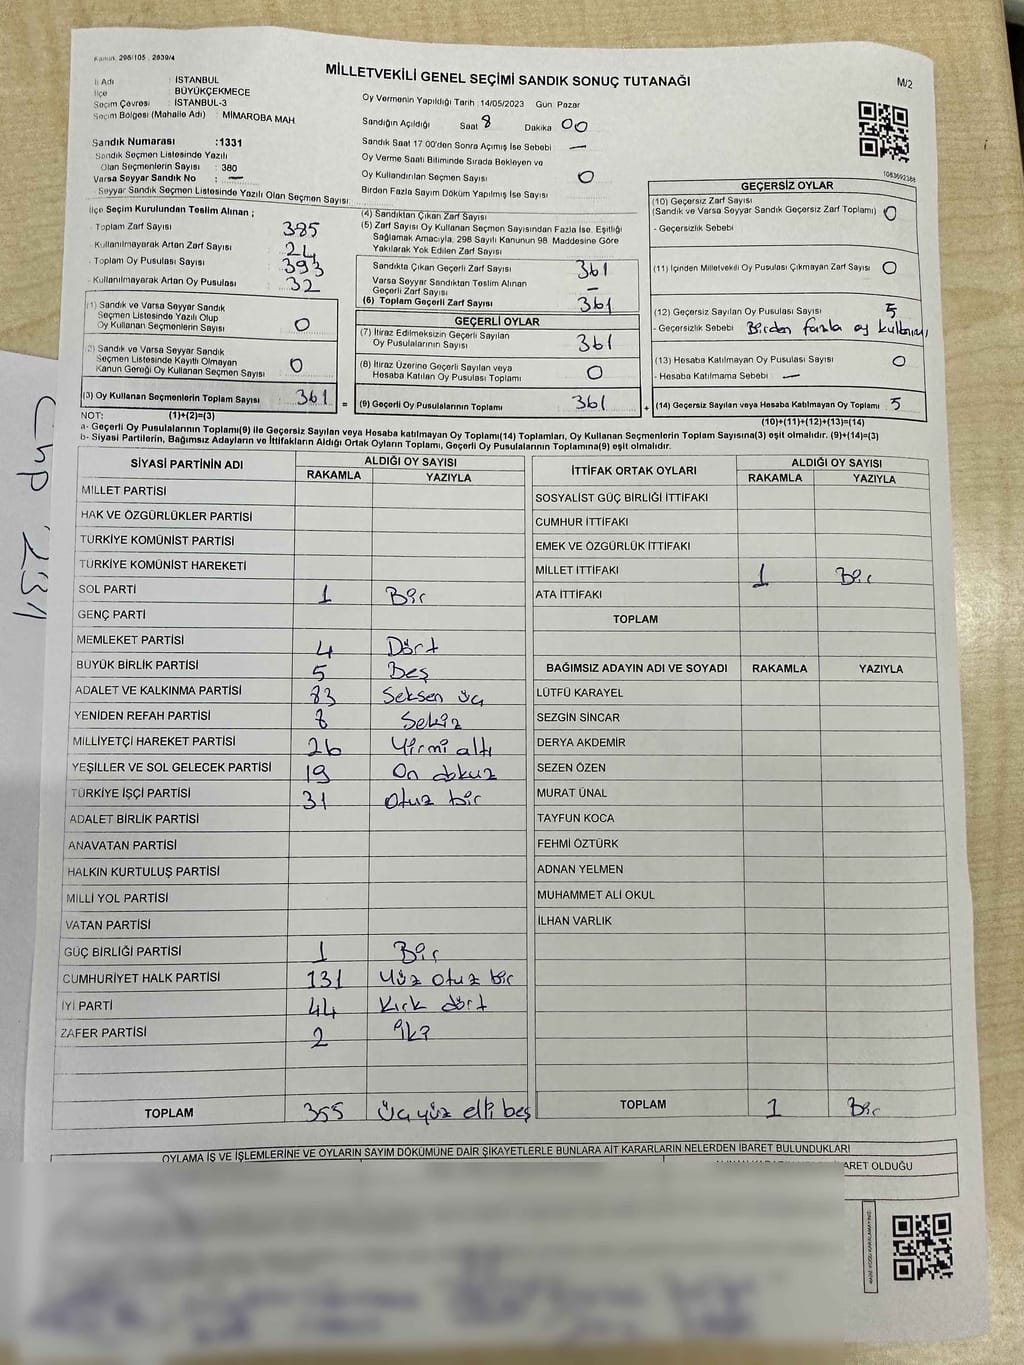 Kanun: 298/105 , 2839/4
MİLLETVEKİLİ GENEL SEÇİMİ SANDIK SONUÇ TUTANAĞI
M/2
İl Adı : İSTANBUL
İlçe : BÜYÜKÇEKMECE
Seçim Çevresi : İSTANBUL-3
Seçim Bölgesi (Mahalle Adı) : MİMAROBA MAH
Sandık Numarası :1331
Sandık Seçmen Listesinde Yazılı
Olan Seçmenlerin Sayısı : 380
Varsa Seyyar Sandık No : —
Seyyar Sandık Seçmen Listesinde Yazılı Olan Seçmen Sayısı:
Oy Vermenin Yapıldığı Tarih 14/05/2023 Gün Pazar
Sandığın Açıldığı Saat 8 Dakika 00
Sandık Saat 17:00'den Sonra Açımış İse Sebebi —
Oy Verme Saati Bitiminde Sırada Bekleyen ve
Oy Kullandırılan Seçmen Sayısı 0
Birden Fazla Sayım Döküm Yapılmış İse Sayısı
1083692388
İlçe Seçim Kurulundan Teslim Alınan ;
- Toplam Zarf Sayısı 385
- Kullanılmayarak Artan Zarf Sayısı 24
- Toplam Oy Pusulası Sayısı 393
- Kullanılmayarak Artan Oy Pusulası 32
(1) Sandık ve Varsa Seyyar Sandık
Seçmen Listesinde Yazılı Olup
Oy Kullanan Seçmenlerin Sayısı 0
(2) Sandık ve Varsa Seyyar Sandık
Seçmen Listesinde Kayıtlı Olmayan
Kanun Gereği Oy Kullanan Seçmen Sayısı 0
(3) Oy Kullanan Seçmenlerin Toplam Sayısı 361 =
(4) Sandıktan Çıkan Zarf Sayısı
(5) Zarf Sayısı Oy Kullanan Seçmen Sayısından Fazla İse, Eşitliği
Sağlamak Amacıyla, 298 Sayılı Kanunun 98. Maddesine Göre
Yakılarak Yok Edilen Zarf Sayısı
Sandıkta Çıkan Geçerli Zarf Sayısı 361
Varsa Seyyar Sandıktan Teslim Alınan
Geçerli Zarf Sayısı —
(6) Toplam Geçerli Zarf Sayısı 361
GEÇERLİ OYLAR
(7) İtiraz Edilmeksizin Geçerli Sayılan
Oy Pusulalarının Sayısı 361
(8) İtiraz Üzerine Geçerli Sayılan veya
Hesaba Katılan Oy Pusulası Toplamı 0
(9) Geçerli Oy Pusulalarının Toplamı 361 +
GEÇERSİZ OYLAR
(10) Geçersiz Zarf Sayısı
(Sandık ve Varsa Seyyar Sandık Geçersiz Zarf Toplamı) 0
- Geçersizlik Sebebi
(11) İçinden Milletvekili Oy Pusulası Çıkmayan Zarf Sayısı 0
(12) Geçersiz Sayılan Oy Pusulası Sayısı 5
- Geçersizlik Sebebi Birden fazla oy kullanımı
(13) Hesaba Katılmayan Oy Pusulası Sayısı 0
- Hesaba Katılmama Sebebi —
(14) Geçersiz Sayılan veya Hesaba Katılmayan Oy Toplamı 5
NOT: (1)+(2)=(3)
(10)+(11)+(12)+(13)=(14)
a- Geçerli Oy Pusulalarının Toplamı(9) ile Geçersiz Sayılan veya Hesaba katılmayan Oy Toplamı(14) Toplamları, Oy Kullanan Seçmenlerin Toplam Sayısına(3) eşit olmalıdır. (9)+(14)=(3)
b- Siyasi Partilerin, Bağımsız Adayların ve İttifakların Aldığı Ortak Oyların Toplamı, Geçerli Oy Pusulalarının Toplamına(9) eşit olmalıdır.
SİYASİ PARTİNİN ADI ALDIĞI OY SAYISI
RAKAMLA YAZIYLA
MİLLET PARTİSİ
HAK VE ÖZGÜRLÜKLER PARTİSİ
TÜRKİYE KOMÜNİST PARTİSİ
TÜRKİYE KOMÜNİST HAREKETİ
SOL PARTİ 1 Bir
GENÇ PARTİ
MEMLEKET PARTİSİ 4 Dört
BÜYÜK BİRLİK PARTİSİ 5 Beş
ADALET VE KALKINMA PARTİSİ 83 Seksen üç
YENİDEN REFAH PARTİSİ 8 Sekiz
MİLLİYETÇİ HAREKET PARTİSİ 26 Yirmi altı
YEŞİLLER VE SOL GELECEK PARTİSİ 19 On dokuz
TÜRKİYE İŞÇİ PARTİSİ 31 Otuz bir
ADALET BİRLİK PARTİSİ
ANAVATAN PARTİSİ
HALKIN KURTULUŞ PARTİSİ
MİLLİ YOL PARTİSİ
VATAN PARTİSİ
GÜÇ BİRLİĞİ PARTİSİ 1 Bir
CUMHURİYET HALK PARTİSİ 131 Yüz otuz bir
İYİ PARTİ 44 Kırk dört
ZAFER PARTİSİ 2 İki
TOPLAM 355 Üç yüz elli beş
İTTİFAK ORTAK OYLARI ALDIĞI OY SAYISI
RAKAMLA YAZIYLA
SOSYALİST GÜÇ BİRLİĞİ İTTİFAKI
CUMHUR İTTİFAKI
EMEK VE ÖZGÜRLÜK İTTİFAKI
MİLLET İTTİFAKI 1 Bir
ATA İTTİFAKI
TOPLAM
BAĞIMSIZ ADAYIN ADI VE SOYADI RAKAMLA YAZIYLA
LÜTFÜ KARAYEL
SEZGİN SİNCAR
DERYA AKDEMİR
SEZEN ÖZEN
MURAT ÜNAL
TAYFUN KOCA
FEHMİ ÖZTÜRK
ADNAN YELMEN
MUHAMMET ALİ OKUL
İLHAN VARLIK
TOPLAM 1 Bir
OYLAMA İŞ VE İŞLEMLERİNE VE OYLARIN SAYIM DÖKÜMÜNE DAİR ŞİKAYETLERLE BUNLARA AİT KARARLARIN NELERDEN İBARET BULUNDUKLARI
ARET OLDUĞU
Chp 231